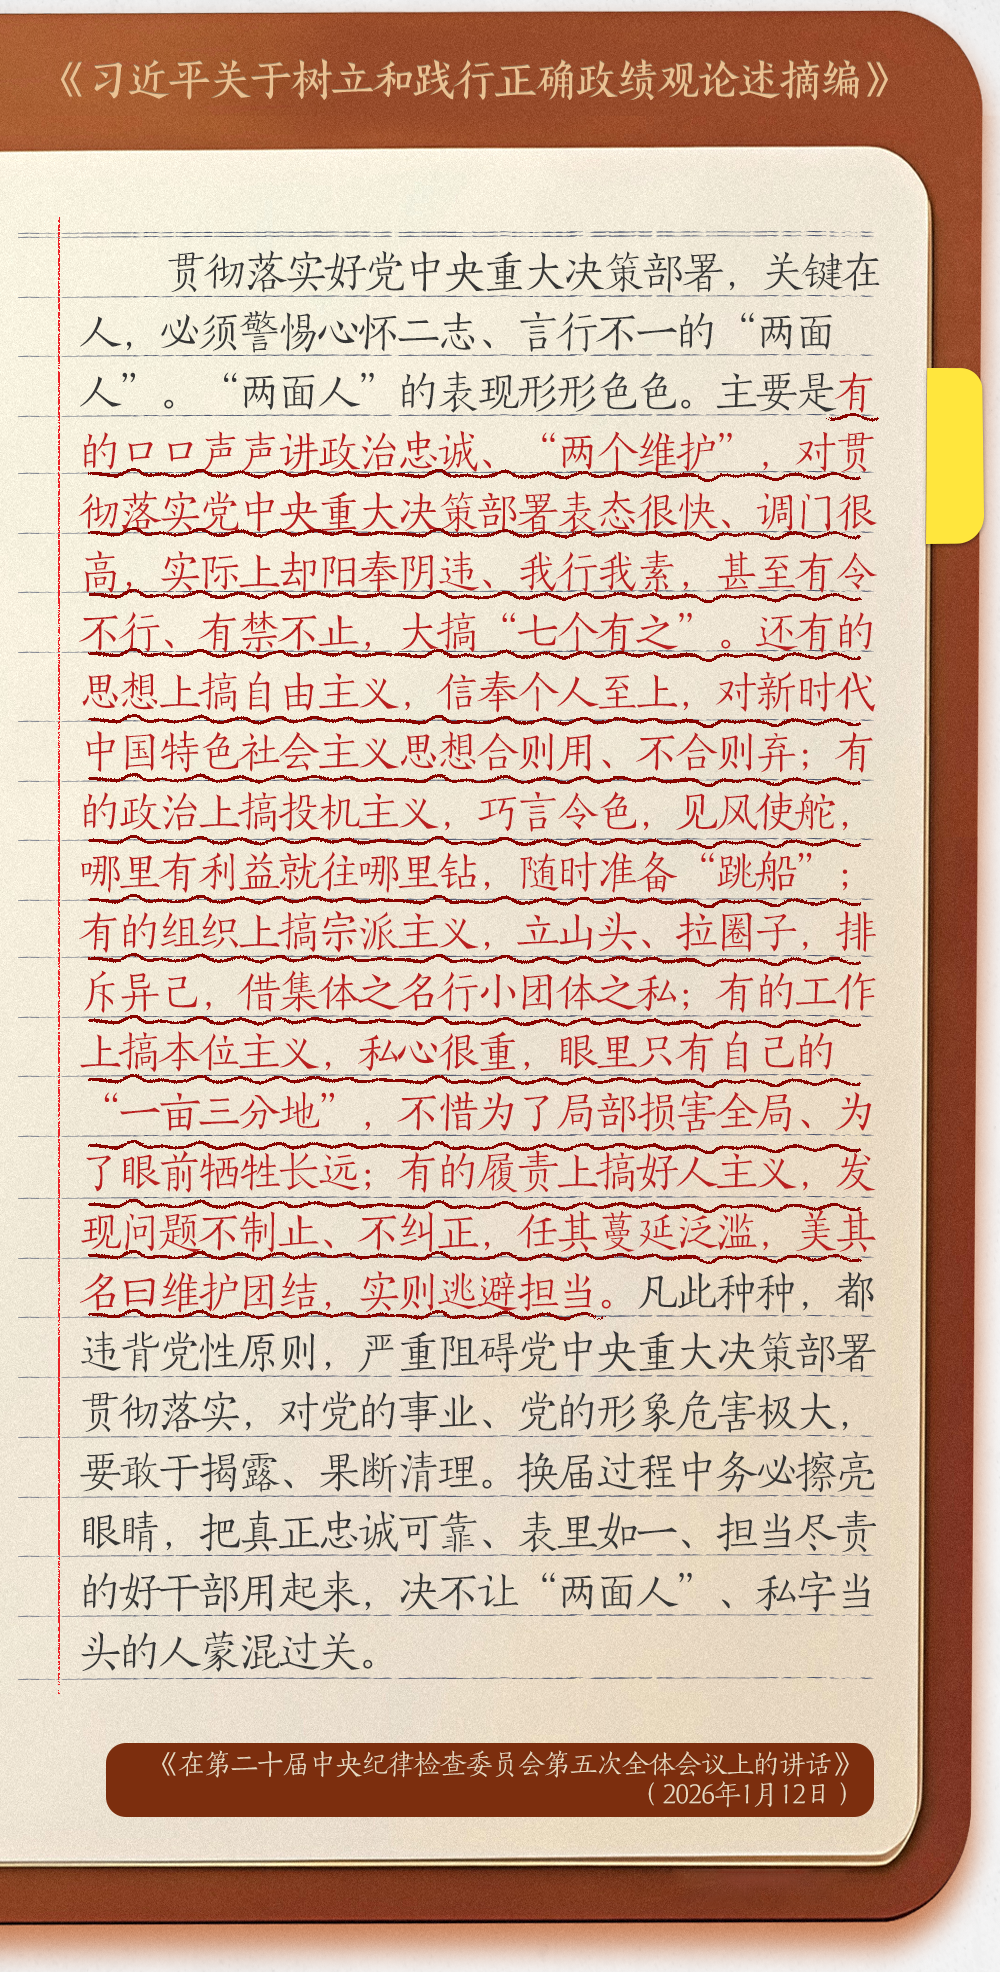 《习近平关于树立和践行正确政绩观论述摘编》
贯彻落实好党中央重大决策部署，关键在
人，必须警惕心怀二志、言行不一的“两面
人”。“两面人”的表现形形色色。主要是有
的口口声声讲政治忠诚、“两个维护”，对贯
彻落实党中央重大决策部署表态很快、调门很
高，实际上却阳奉阴违、我行我素，甚至有令
不行、有禁不止，大搞“七个有之”。还有的
思想上搞自由主义，信奉个人至上，对新时代
中国特色社会主义思想合则用、不合则弃；有
的政治上搞投机主义，巧言令色，见风使舵，
哪里有利益就往哪里钻，随时准备“跳船”；
有的组织上搞宗派主义，立山头、拉圈子，排
斥异己，借集体之名行小团体之私；有的工作
上搞本位主义，私心很重，眼里只有自己的
“一亩三分地”，不惜为了局部损害全局、为
了眼前牺牲长远；有的履责上搞好人主义，发
现问题不制止、不纠正，任其蔓延泛滥，美其
名曰维护团结，实则逃避担当。凡此种种，都
违背党性原则，严重阻碍党中央重大决策部署
贯彻落实，对党的事业、党的形象危害极大，
要敢于揭露、果断清理。换届过程中务必擦亮
眼睛，把真正忠诚可靠、表里如一、担当尽责
的好干部用起来，决不让“两面人”、私字当
头的人蒙混过关。
《在第二十届中央纪律检查委员会第五次全体会议上的讲话》
（2026年1月12日）